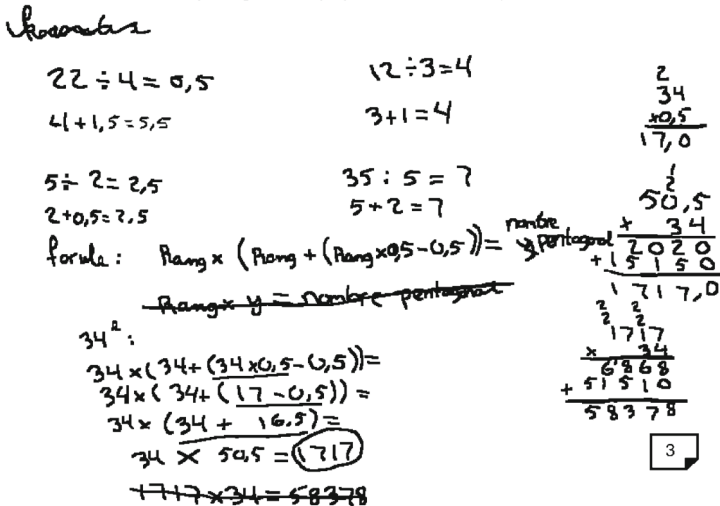 22 ÷ 4 = 5,5
12 ÷ 3 = 4
4 + 1,5 = 5,5
3 + 1 = 4
5 ÷ 2 = 2,5
35 : 5 = 7
2 + 0,5 = 2,5
5 + 2 = 7
forule : Rang x (Rang + (Rang x 0,5 - 0,5)) = nombre pentagonal
Rang x y = nombre pentagonal
34² :
34 x (34 + (34 x 0,5 - 0,5)) =
34 x (34 + (17 - 0,5)) =
34 x (34 + 16,5) =
34 x 50,5 = 1717
1717 x 34 = 58378
2
34
x0,5
17,0
1
2
50,5
x 34
2020
+ 15150
1717,0
2 2
2 2
1717
x 34
6868
+ 51510
58378
3